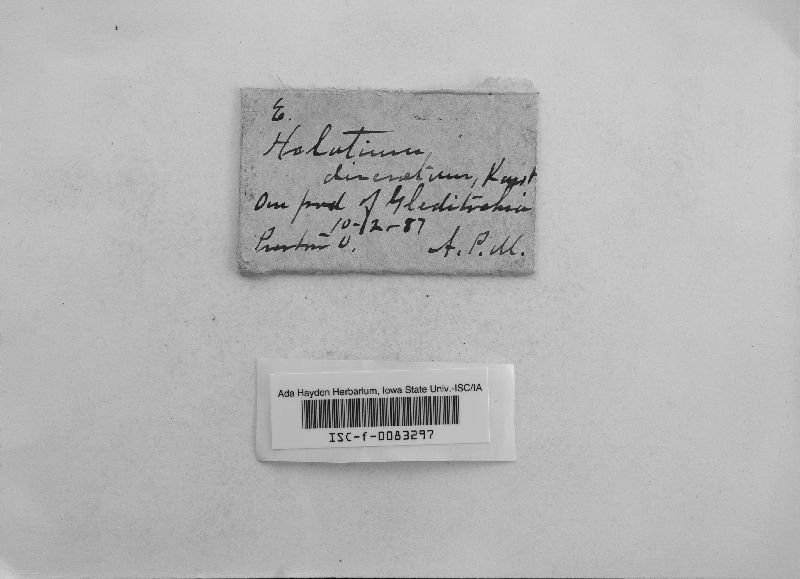 E.
Helotium
discretum, Karst
On pod of Gleditschia
10-12-87
Preston O. A. P. M.
Ada Hayden Herbarium, Iowa State Univ.-ISC/IA
ISC-f-0083297